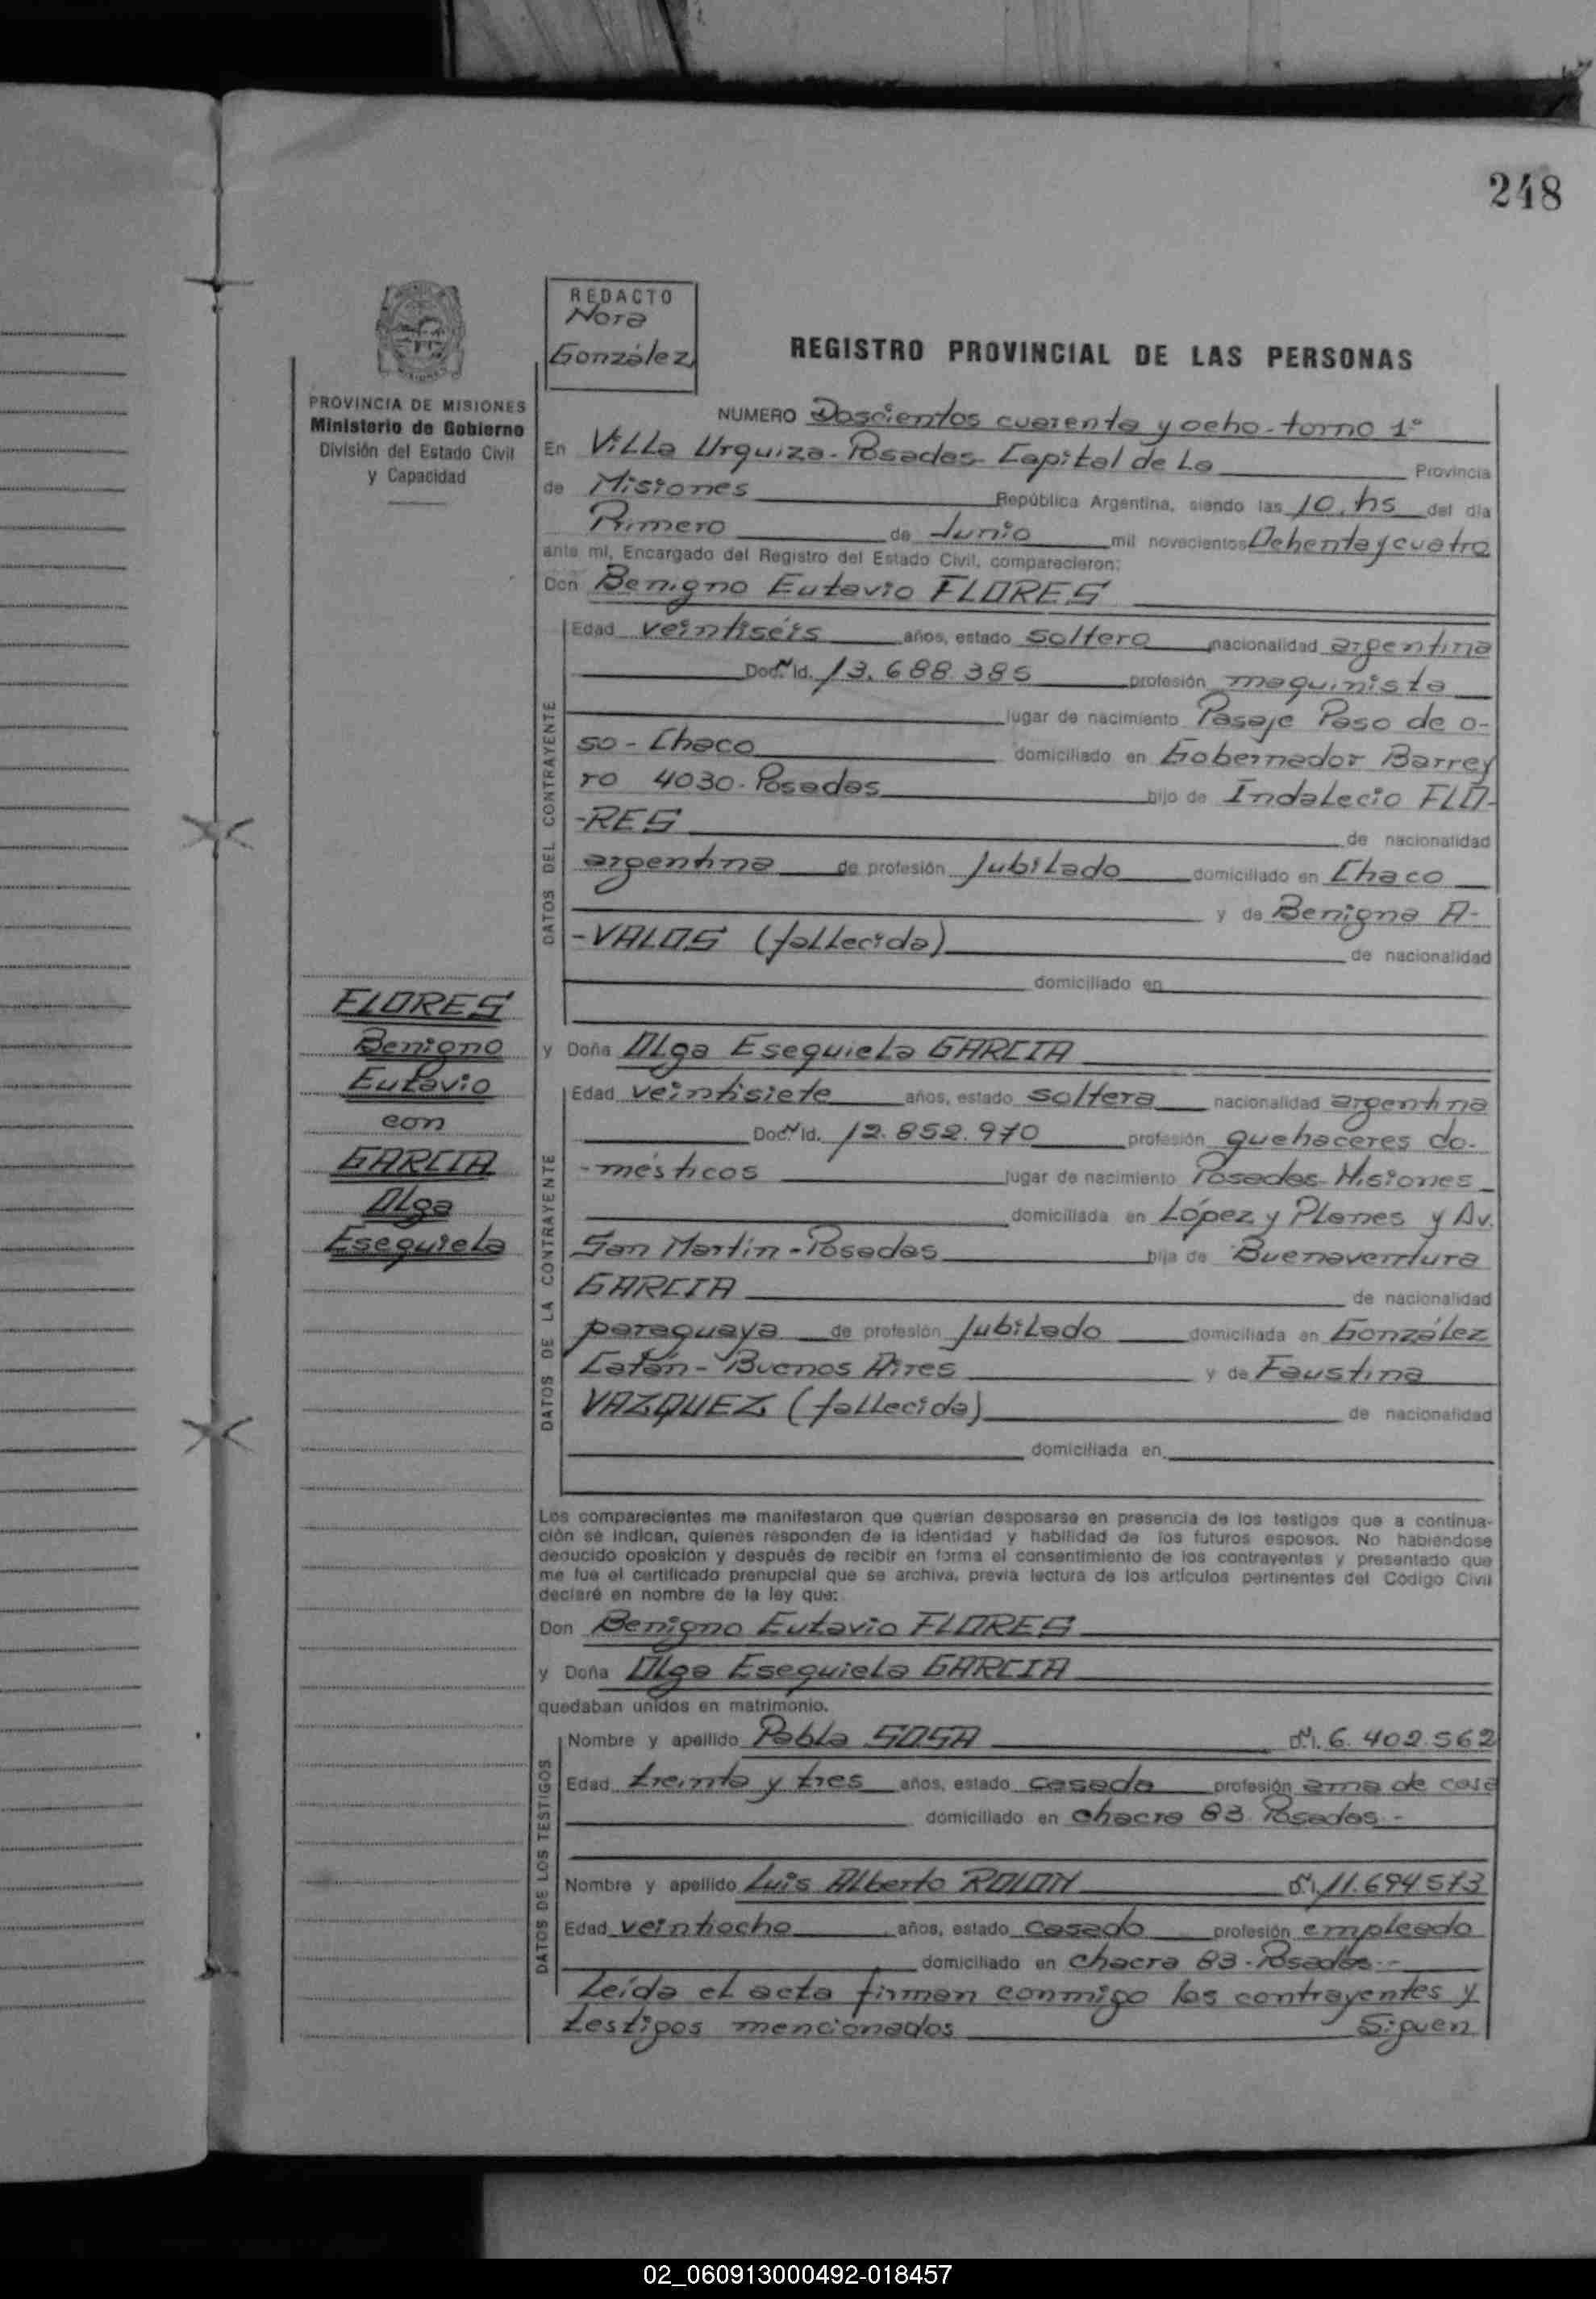 248
REDACTO
Nora
González
REGISTRO PROVINCIAL DE LAS PERSONAS
PROVINCIA DE MISIONES
Ministerio de Gobierno
División del Estado Civil
y Capacidad
NUMERO Doscientos cuarenta y ocho - tomo 1º
En Villa Urquiza - Posadas - Capital de La Provincia
de Misiones República Argentina, siendo las 10,hs del día
Primero de Junio mil novecientos Ochenta y cuatro
ante mí, Encargado del Registro del Estado Civil, comparecieron:
Don Benigno Eutavio FLORES
DATOS DEL CONTRAYENTE
Edad veintiséis años, estado soltero nacionalidad argentina
Doc. Id. 13.688.385 profesión maquinista
lugar de nacimiento Pasaje Paso de o-
so - Chaco domiciliado en Gobernador Barrey
ro 4030 - Posadas hijo de Indalecio FLO-
-RES de nacionalidad
argentina de profesión Jubilado domiciliado en Chaco
y de Benigna A-
-VALOS (fallecida) de nacionalidad
domiciliado en
FLORES
Benigno
Eutavio
con
GARCIA
Olga
Esequiela
y Doña Olga Esequiela GARCIA
DATOS DE LA CONTRAYENTE
Edad veintisiete años, estado soltera nacionalidad argentina
Doc. Id. 12.852.970 profesión quehaceres do-
-mésticos lugar de nacimiento Posadas - Misiones
domiciliada en López y Planes y Av.
San Martín - Posadas hija de Buenaventura
GARCIA de nacionalidad
paraguaya de profesión Jubilado domiciliada en González
Catán - Buenos Aires y de Faustina
VAZQUEZ (fallecida) de nacionalidad
domiciliada en
Los comparecientes me manifestaron que querían desposarse en presencia de los testigos que a continua-
ción se indican, quienes responden de la identidad y habilidad de los futuros esposos. No habiendose
deducido oposición y después de recibir en forma el consentimiento de los contrayentes y presentado que
me fue el certificado prenupcial que se archiva, previa lectura de los artículos pertinentes del Código Civil
declaré en nombre de la ley que:
Don Benigno Eutavio FLORES
y Doña Olga Esequiela GARCIA
quedaban unidos en matrimonio.
DATOS DE LOS TESTIGOS
Nombre y apellido Pabla SOSA 6.402.562
Edad treinta y tres años, estado casada profesión ama de casa
domiciliado en chacra 83 Posadas -
Nombre y apellido Luis Alberto ROLON 11.694.573
Edad veintiocho años, estado casado profesión empleado
domiciliado en chacra 83 - Posadas -
Leída el acta firman conmigo los contrayentes y
testigos mencionados Siguen
02_060913000492-018457